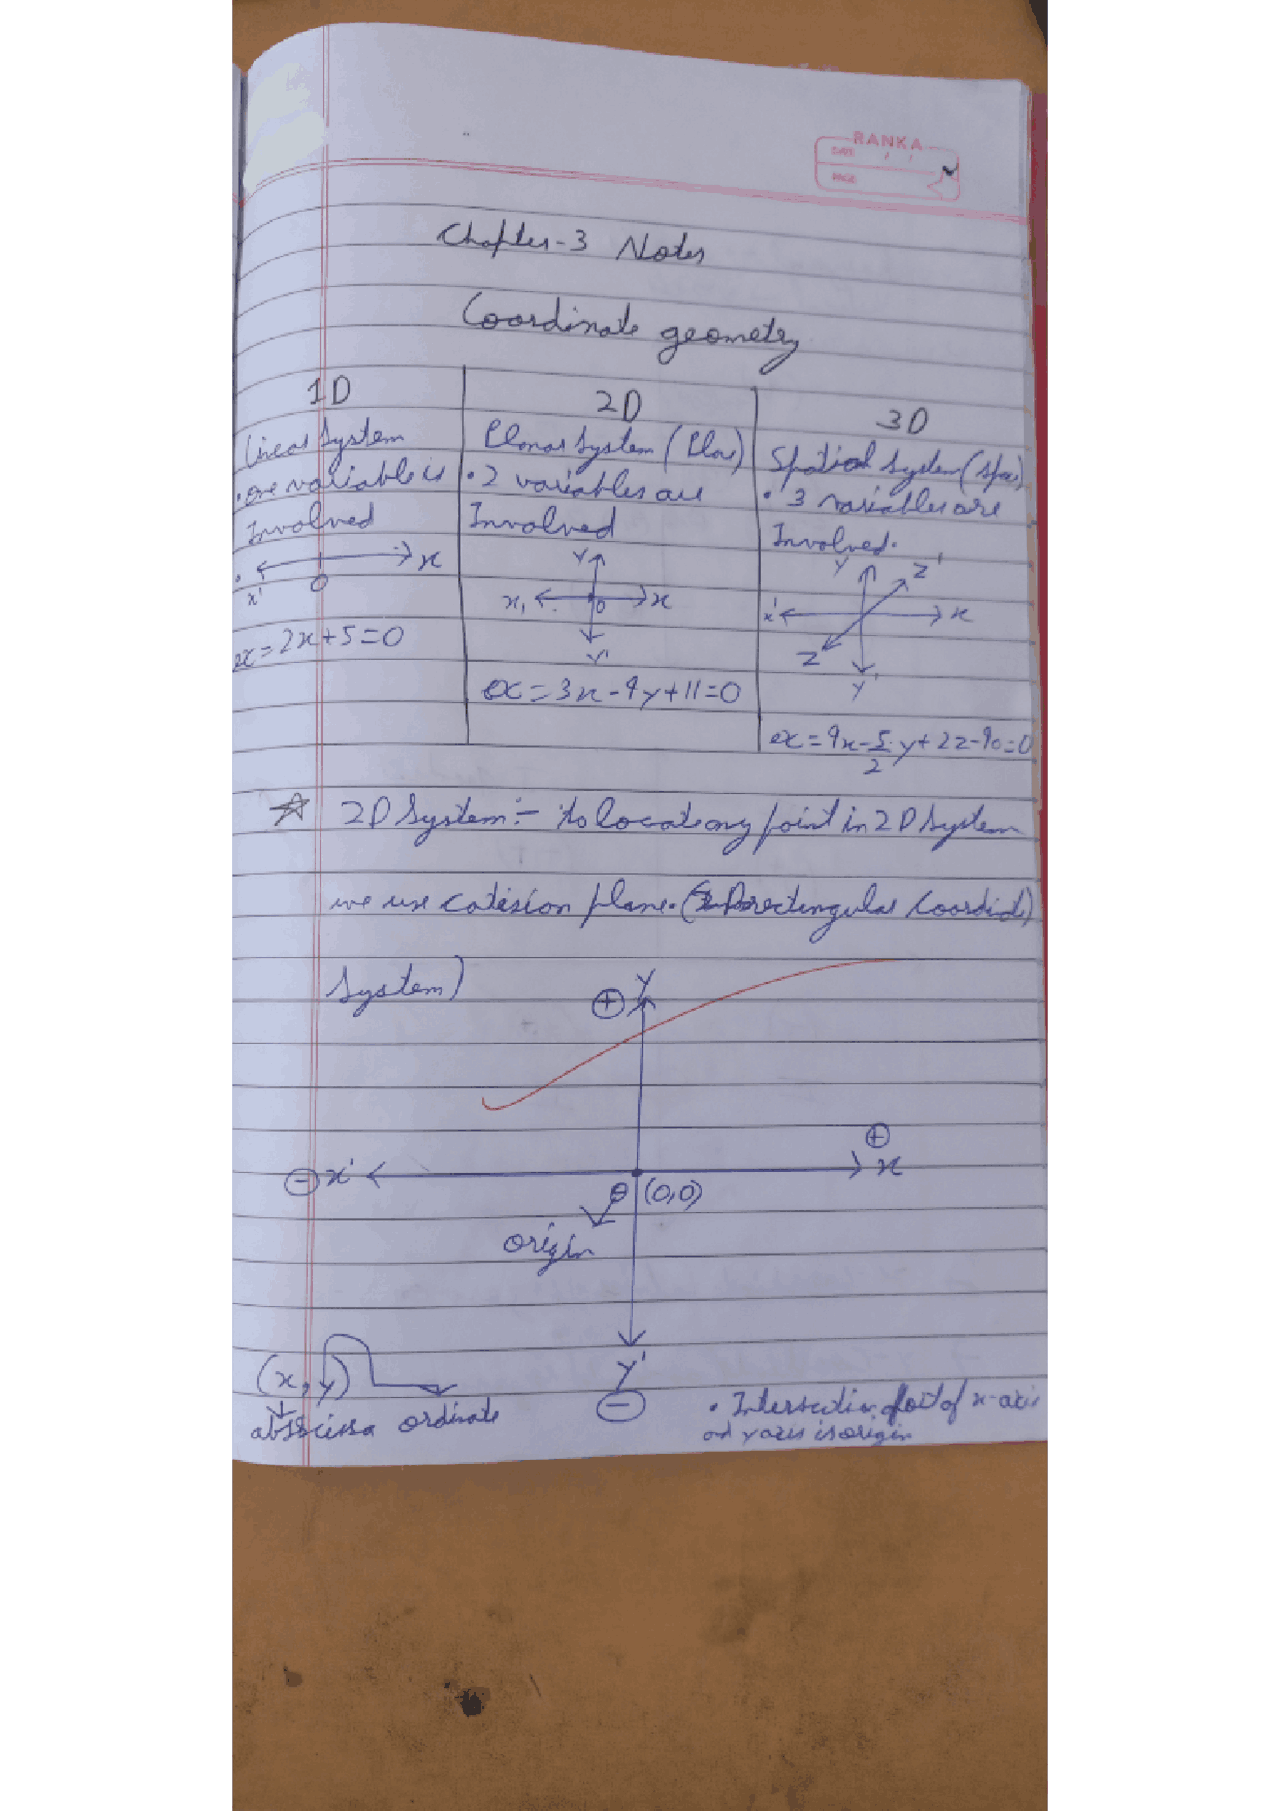 RANKA
DATE / /
PAGE
Chapter-3 Notes
Coordinate geometry
1D
Linear System
• one variable is
Involved
x' O x
ex = 2x+5=0
2D
Planar System (Plane)
• 2 variables are
Involved
Y
x, O x
Y'
ex = 3x-9y+11=0
3D
Spatial System (Space)
• 3 variables are
Involved.
Y Z'
x' x
Z Y'
ex = 9x-5/2 y+2z-90=0
☆ 2D System :- to locate any point in 2D System
we use catesion plane. (rectingular Coordid)
System)
⊕ Y
⊕
⊖ x' x
O (0,0)
origin
Y'
⊖
(x, y)
absscissa ordinate
• Intersection point of x-axis
and y axis is origin